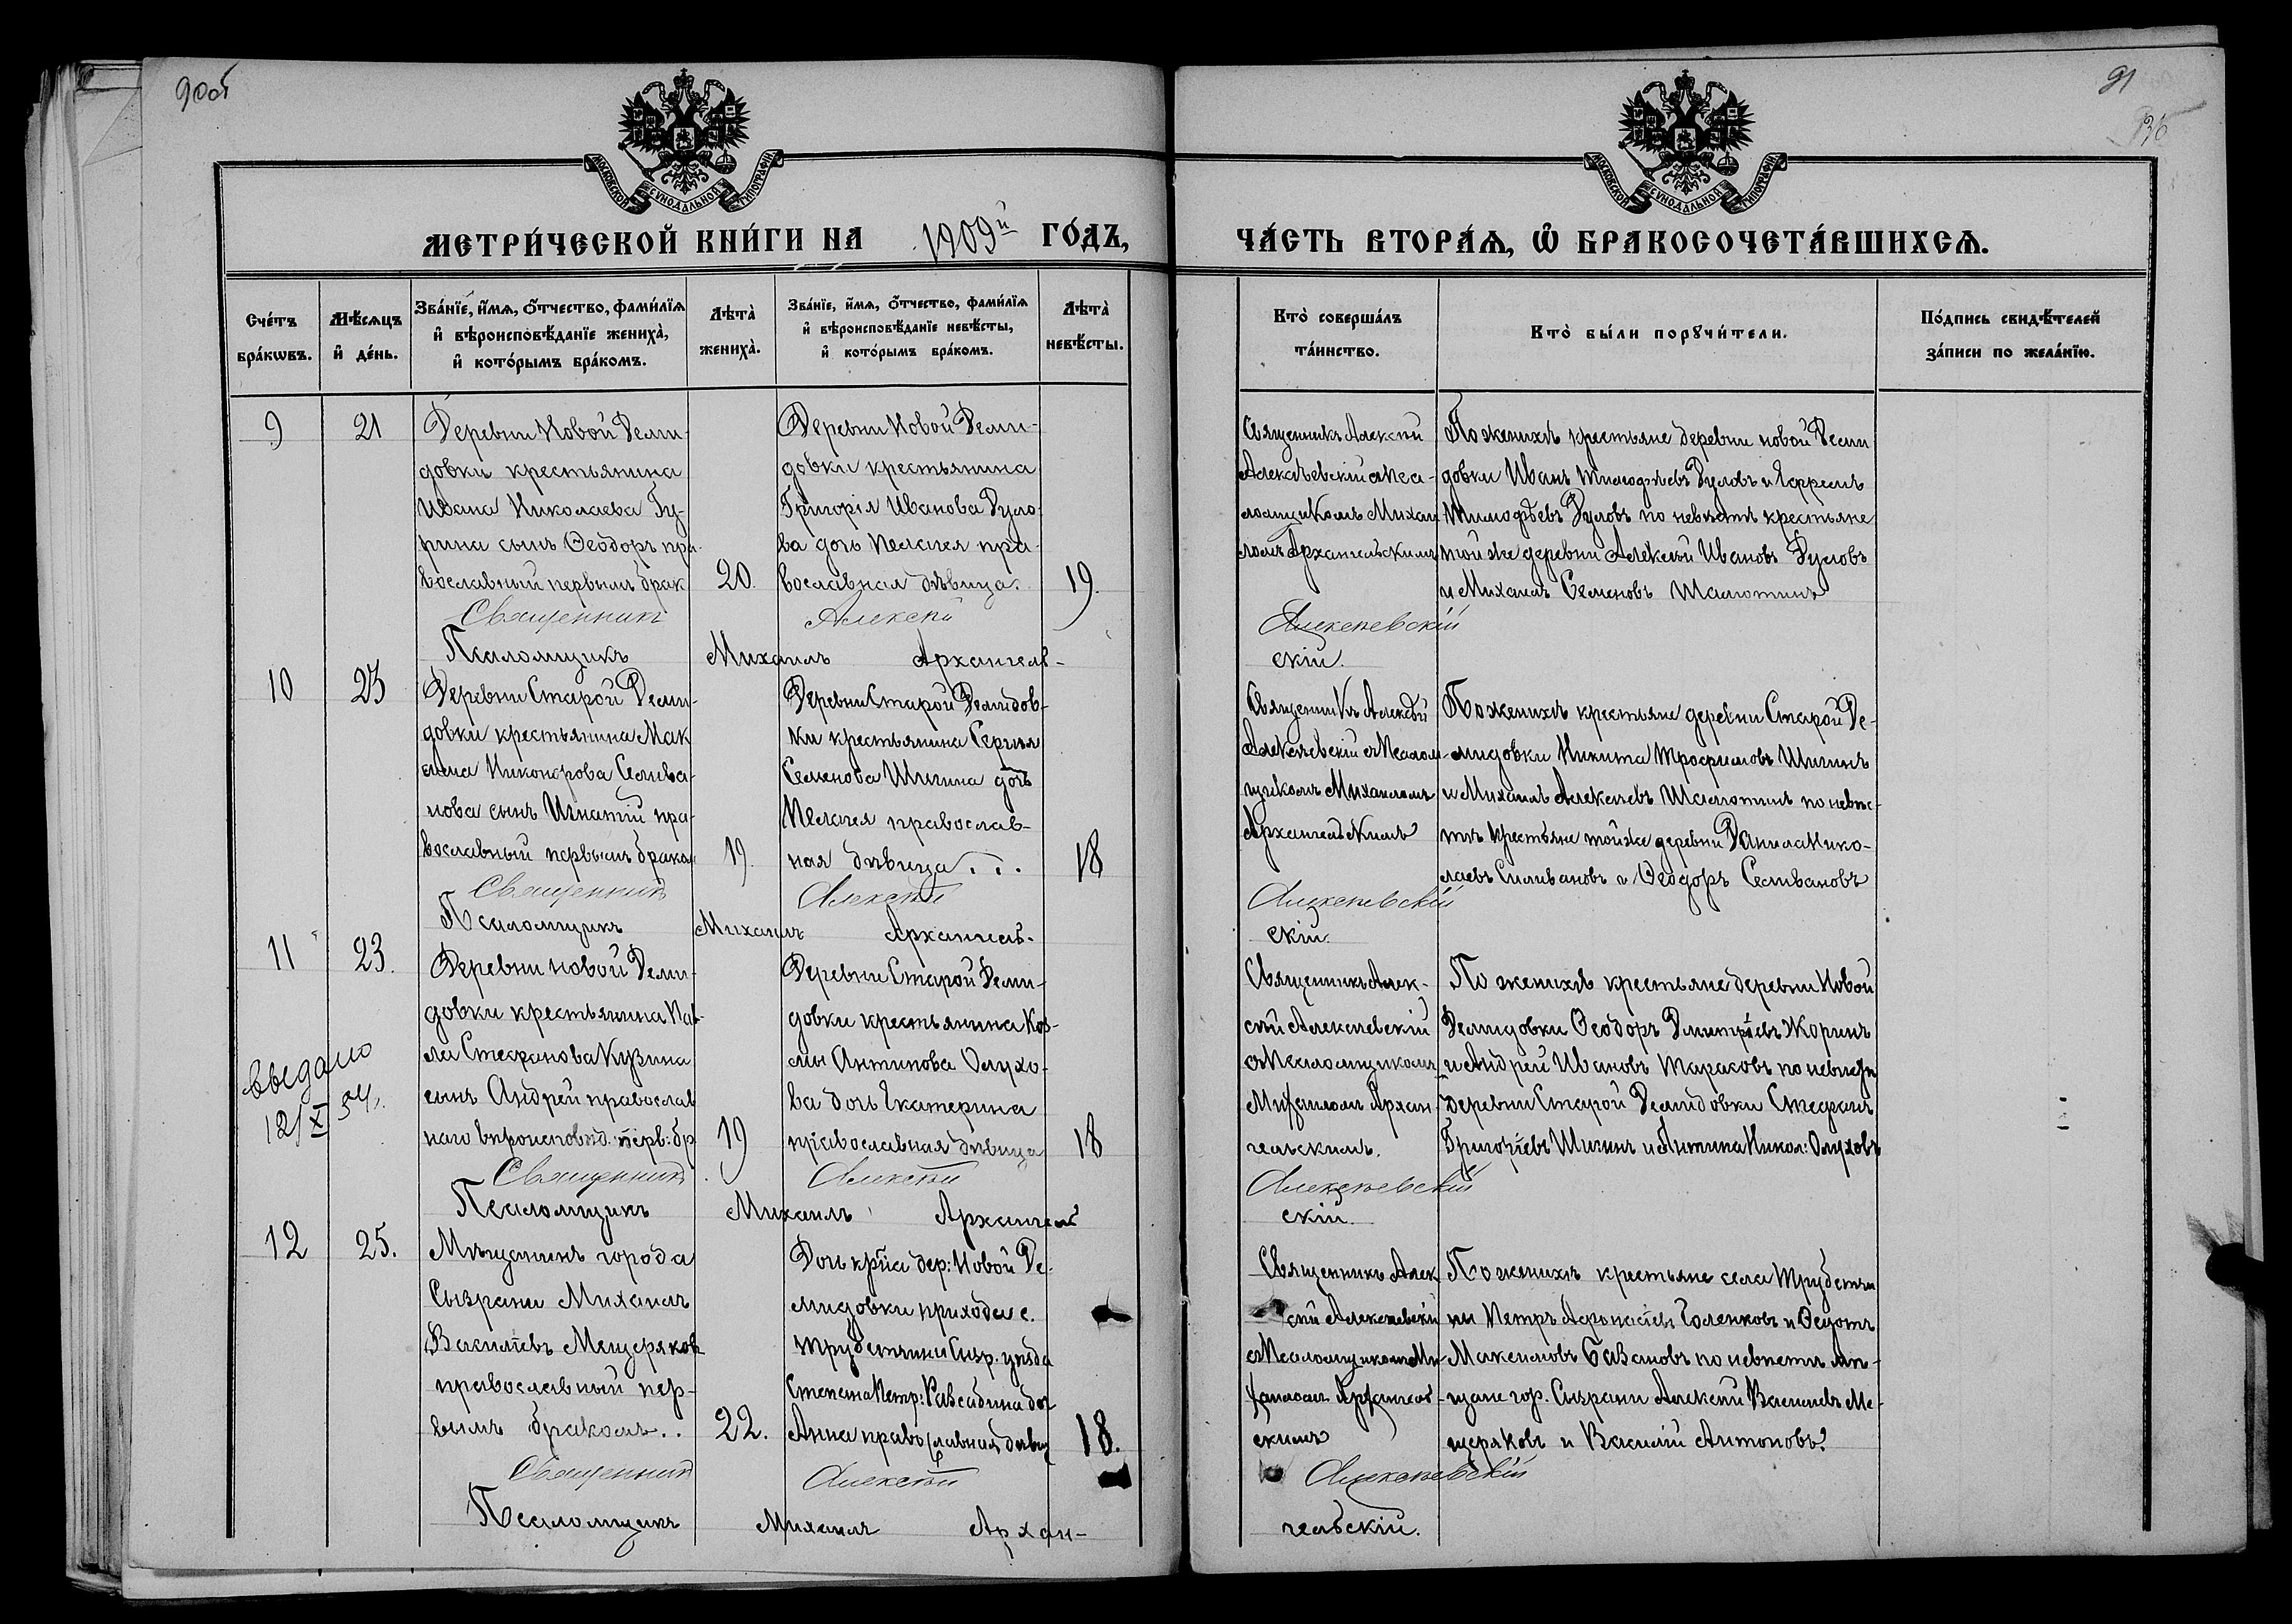 90об
91
МОСКОВСКОЙ СѴНОДАЛЬНОЙ ТИПОГРАФІИ
МОСКОВСКОЙ СѴНОДАЛЬНОЙ ТИПОГРАФІИ
МЕТРИ́ЧЕСКОЙ КНИ́ГИ НА 1909й ГО́ДЪ,
ЧА́СТЬ ВТОРА́Ѧ, Ѡ҆ БРАКОСОЧЕТА́ВШИХСѦ.
Сче́тъ бра́кωвъ.
Мѣ́сѧцъ и҆ де́нь.
Зва́нїе, и҆́мѧ, ѻ҆́тчество, фами́лїѧ
и҆ вѣроисповѣ́данїе жениха̀,
и҆ кото́рымъ бра́комъ.
Лѣта̀ жениха̀.
Зва́нїе, и҆́мѧ, ѻ҆́тчество, фами́лїѧ
и҆ вѣроисповѣ́данїе невѣ́сты,
и҆ кото́рымъ бра́комъ.
Лѣта̀ невѣ́сты.
Кто̀ соверша́лъ
та́инство.
Кто̀ бы́ли порꙋчи́тели.
По́дпись свидѣ́телей
за́писи по жела́нїю.
9
21
Деревни Новой Деми-
довки крестьянина
Ивана Николаева Гу-
рина сынъ Ѳеодоръ пра-
вославный первымъ брак
20.
Деревни Новой Деми-
довки крестьянина
Григорія Иванова Дуло-
ва дочь Пелагея пра-
вославная дѣвица.
19.
Священникъ Алексѣй
Алексѣевскій съ Пса-
ломщикомъ Михаи
ломъ Архангельскимъ
По женихѣ крестьяне деревни новой Деми
довки Иванъ Тимофѣевъ Дуловъ и Ефремъ
Тимофѣевъ Дуловъ по невѣстѣ крестьяне
той же деревни Алексѣй Ивановъ Дуловъ
и Михаилъ Семеновъ Шалютинъ
Священникъ Алексѣй Алексѣевскій
Псаломщикъ Михаилъ Архангель-
скій.
10
23
Деревни Старой Деми-
довки крестьянина Мак
сима Никонорова Селива-
нова сынъ Игнатій пра-
вославный первымъ бракомъ
19.
Деревни Старой Демидов-
ки крестьянина Сергѣя
Семенова Шигина дочь
Пелагея православ-
ная дѣвица...
18
Священникъ Алексѣй
Алексѣевскій съ Псалом-
щикомъ Михаиломъ
Архангельскимъ
По женихѣ крестьяне деревни Старой Де-
мидовки Никита Трофимовъ Шигинъ
и Михаилъ Алексѣевъ Шалютинъ по невѣс-
тѣ крестьяне той же деревни Данила Нико-
лаевъ Силивановъ и Ѳеодоръ Селивановъ
Священникъ Алексѣй Алексѣевскій
Псаломщикъ Михаилъ Архангель-
скій.
11
23.
выдано
12/X 54г.
Деревни новой Деми-
довки крестьянина Пав-
ла Стефанова Кузина
сынъ Андрей православ
наго вѣроисповѣд. перв: бр
19
Деревни Старой Деми-
довки крестьянина Коз-
мы Антипова Олухо-
ва дочь Екатерина
православная дѣвица
18
Священникъ Алек-
сѣй Алексѣевскій
съ Псаломщикомъ
Михаиломъ Архан
гельскимъ.
По женихѣ крестьяне деревни Новой
Демидовки Ѳеодоръ Дмитріевъ Жоринъ
и Андрей Ивановъ Тараковъ по невѣстѣ
деревни Старой Демидовки Стефанъ
Григорьевъ Шигинъ и Антипа Никол: Олуховъ
Священникъ Алексѣй Алексѣевскій
Псаломщикъ Михаилъ Архангель
скій.
12
25.
Мѣщанинъ города
Сызрани Михаилъ
Васильевъ Мещеряковъ
православный пер-
вымъ бракомъ..
22.
Дочь кр-на дер: Новой Де-
мидовки прихода с.
Трубетчины Сызр. уѣзда
Степана Петр: дочь
Анна православная дѣвиц
18.
Священникъ Алек
сѣй Алексѣевскій
съ Псаломщикомъ Ми-
хаиломъ Архангель
скимъ
По женихѣ крестьяне села Трубетчи
ны Петръ Афонасьевъ Голенковъ и Ѳедотъ
Максимовъ по невѣстѣ мѣ-
щане гор. Сызрани Алексѣй Васильевъ Ме-
щеряковъ и Василій Антоновъ.
Священникъ Алексѣй Алексѣевскій
Псаломщикъ Михаилъ Архан-
гельскій.